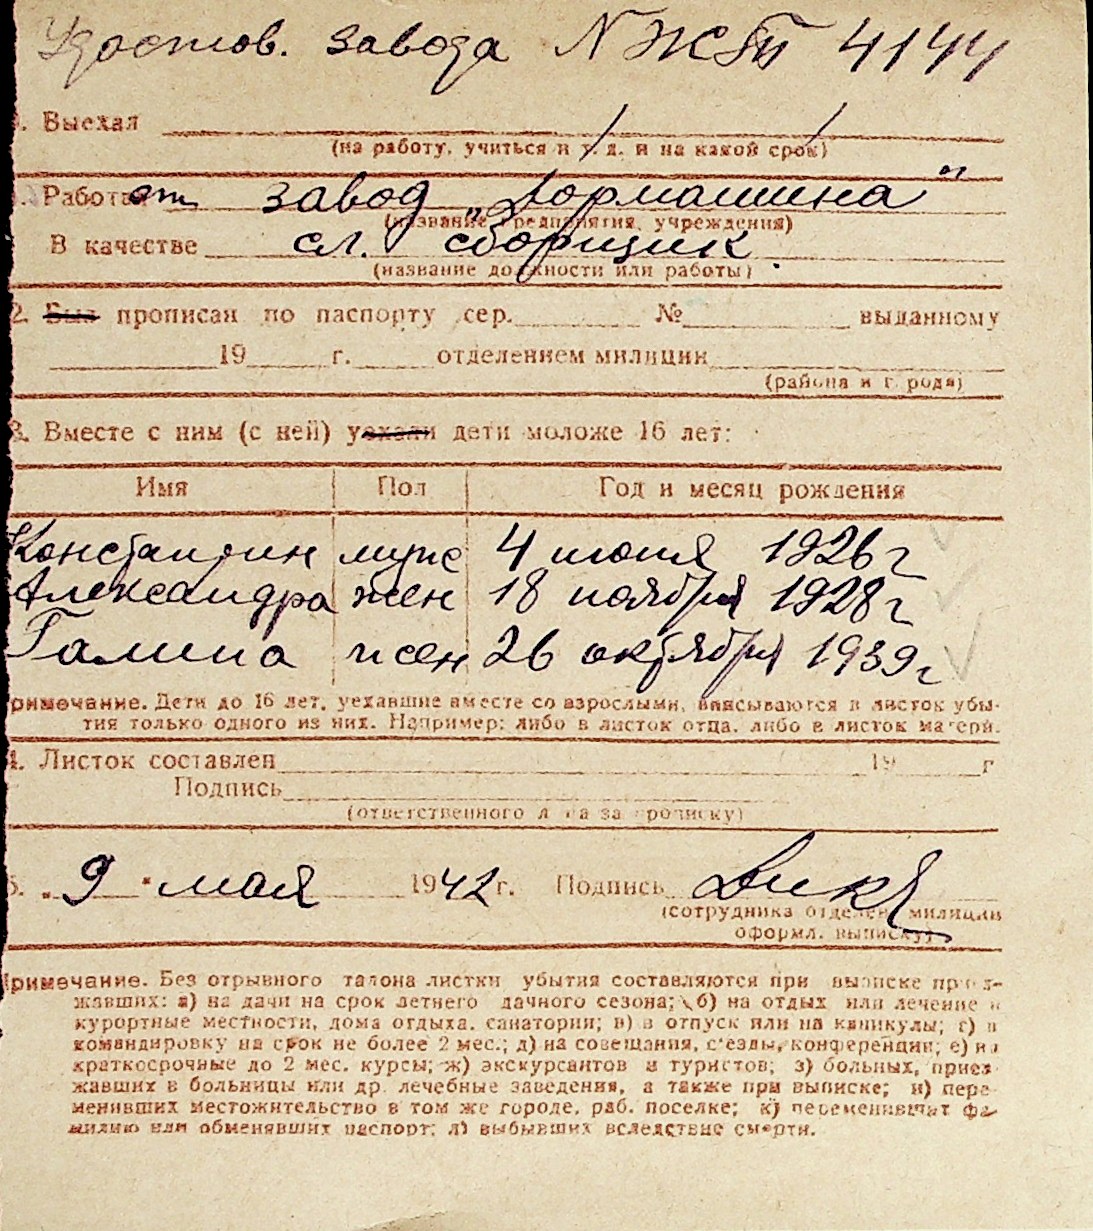 Удостов. завода № ЖБТ 4144
. Выехал
(на работу, учиться и т. д. и на какой срок)
Работает завод „Дормашина"
(название предприятия, учреждения)
В качестве сл. сборщик.
(название должности или работы)
2. Был прописан по паспорту сер. № выданному
19 г. отделением милиции
(района и города)
3. Вместе с ним (с ней) уехали дети моложе 16 лет:
Имя Пол Год и месяц рождения
Константин муж 4 июня 1926 г
Александра жен 18 ноября 1928 г
Галина жен 26 октября 1939 г
Примечание. Дети до 16 лет, уехавшие вместе со взрослыми, вписываются в листок убы-
тия только одного из них. Например: либо в листок отца, либо в листок матери.
4. Листок составлен 19 г
Подпись
(ответственного лица за прописку)
5. „9" мая 1942 г. Подпись
(сотрудника отделен. милиции
оформл. выписку)
Примечание. Без отрывного талона листки убытия составляются при выписке приез-
жавших: а) на дачи на срок летнего дачного сезона; б) на отдых или лечение в
курортные местности, дома отдыха, санатории; в) в отпуск или на каникулы; г) в
командировку на срок не более 2 мес.; д) на совещания, с'езды, конференции; е) на
краткосрочные до 2 мес. курсы; ж) экскурсантов и туристов; з) больных, приез-
жавших в больницы или др. лечебные заведения, а также при выписке; и) пере-
менивших местожительство в том же городе, раб. поселке; к) переменивших фа-
милию или обменявших паспорт; л) выбывших вследствие смерти.